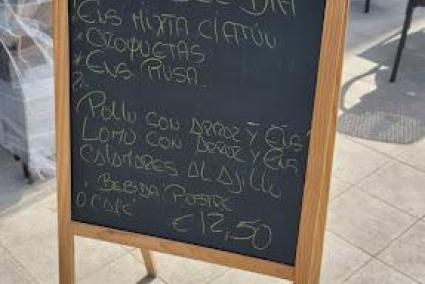 DIA
ENS MIXTA C/ATÚN
*CROQUETAS
*ENS RUSA
POLLO CON ARROZ Y ENS
LOMO CON ARROZ Y ENS
CALAMARES AL AJILLO
BEBIDA POSTRE
O CAFE
€12,50